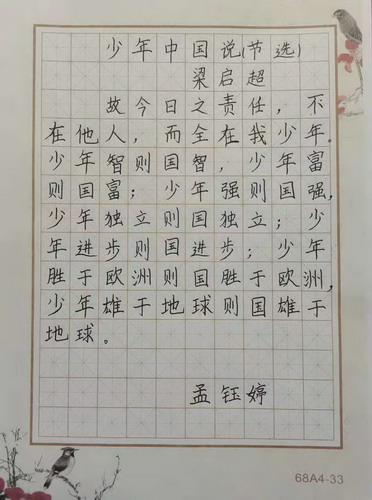 少年中国说(节选)
梁启超
故今日之责任，不
在他人，而全在我少年。
少年智则国智，少年富
则国富；少年强则国强，
少年独立则国独立；少
年进步则国进步；少年
胜于欧洲则国胜于欧洲，
少年雄于地球则国雄于
地球。
孟钰婷
68A4-33